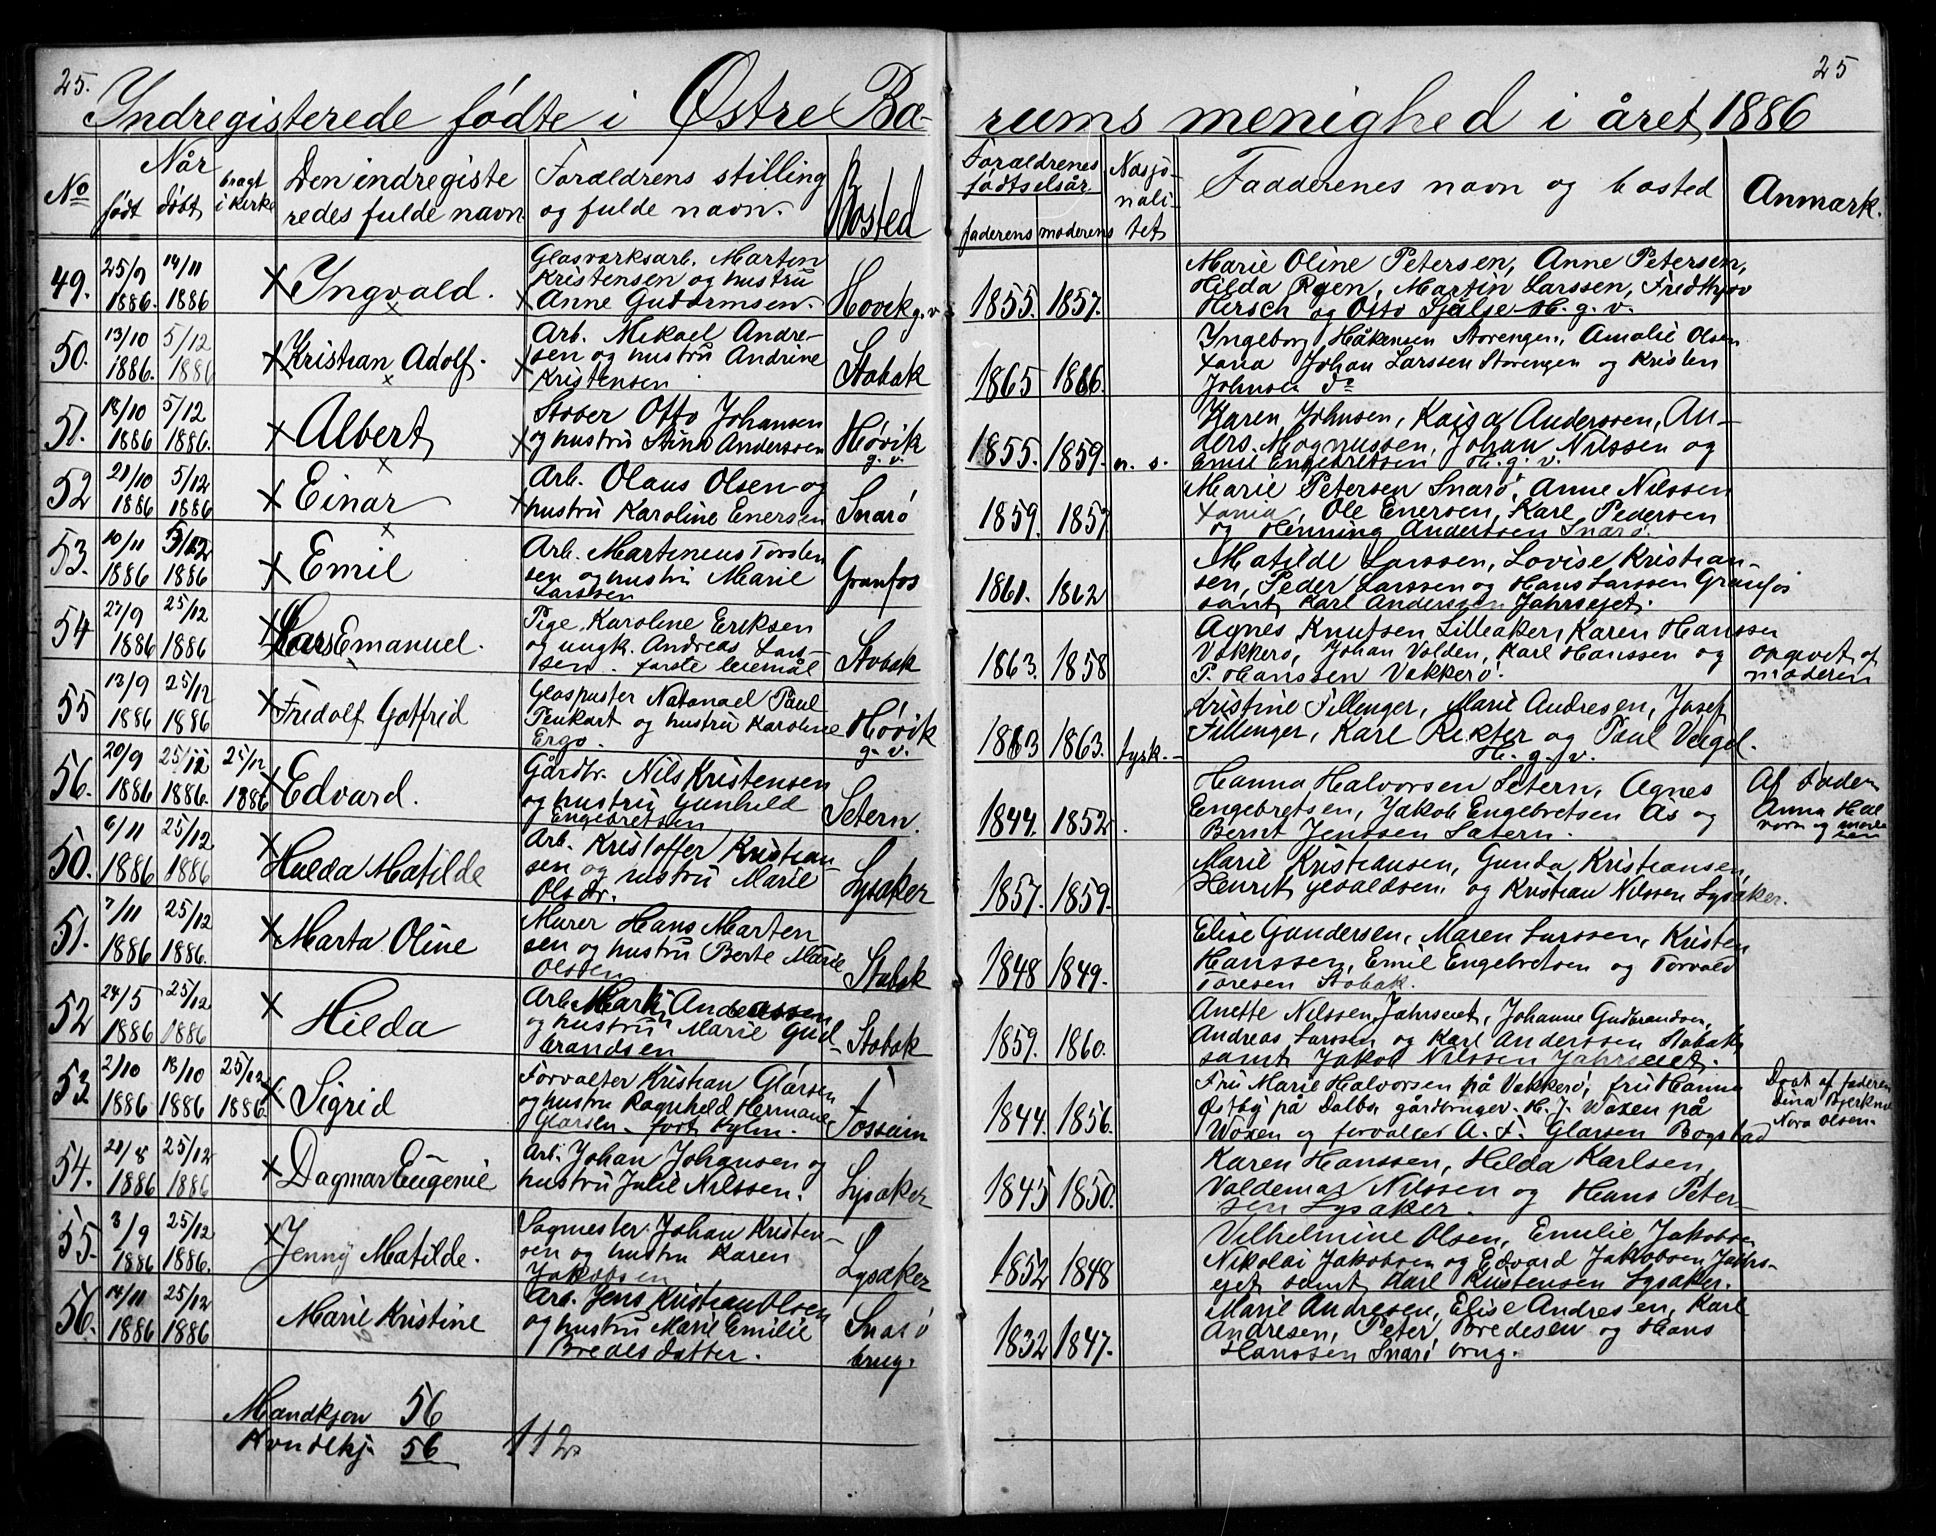 25.
25
Indregisterede fødte i Østre Bæ-
rums menighed i året 1886
No
Når
født
døbt
bragt
i kirke
Den indregiste
redes fulde navn
Foraldrens stilling
og fulde navn.
Bosted
Foraldrenes
fødtselsår.
faderens moderens
Nasjo-
nali-
tet
Fadderenes navn og bosted
Anmærk.
49.
25/9 14/11
1886. 1886
Ingvald.
Glasværksarb. Marten
Kristensen og hustru
Anne Guttormsen.
Høvik g. v.
1855. 1857.
Marie Oline Petersen, Anne Petersen,
Hilda Roen, Martin Larssen, Fredthjov
Hersch og Otto Sjølse H. g. v.
50.
13/10 5/12
1886. 1886
Kristian Adolf.
Arb. Mikael Andre-
sen og hustru Andrine
Kristensen
Stabak
1865 1866.
Ingeborg Håkensen Storengen, Amalie Olsen
Xania Johan Larssen Storengen og Kristen
Johnsen do
51.
18/10 5/12
1886 1886.
Albert
Støber Otto Johansen
og hustru Stina Anderssen
Høvik
g. v.
1855. 1859. n. s.
Karen Johnsen, Kajsa Anderssen, An-
ders Magnussen, Johan Nilssen og
Emil Engebretssen H. g. v.
52
21/10 5/12
1886 1886
Einar
Arb. Olaus Olsen og
hustru Karoline Enersen
Snarø
1859. 1857
Marie Petersen Snarø, Anne Nilssen
Xania, Ole Enersen, Karl Pedersen
og Henning Anderssen Snarø.
53.
10/11
1886 1886
Emil
Arb. Martineus Torsten
sen og hustru Marie
Larssen
Granfos
1861. 1862
Matilde Larssen, Lovise Kristian-
sen, Peder Larssen og Hans Larssen Granfos
samt Karl Anderssen Jahrsejet.
54
27/9 25/12
1886 1886
Lars Emanuel.
Pige Karoline Eriksen
og ungk. Andreas Lars-
sen. første leiemål
Stabak
1863. 1858
Agnes Knutsen Lilleaker, Karen Hanssen
Vækkerø, Johan Volden, Karl Hanssen og
P. Hanssen Vækkerø.
opgivet af
moderen
55
13/9 25/12
1886 1886
Fridolf Gotfrid
Glaspuster Natanael Paul
Penkart og hustru Karoline
Ergo.
Høvik
g. v.
1863 1863. tysk.
Kristine Fillenger, Marie Andresen, Josef
Fillenger, Karl Rikter og Paul Veigel.
H. g. v.
56.
20/9 25/12 25/12
1886 1886. 1886
Edvard.
Gårdbr. Nils Kristensen
og hustru Gunhild
Engebretsen
Setern.
1844. 1852
Hanna Halvorsen Setern, Agnes
Engebretsen, Jakob Engebretsen Ås og
Bernt Jenssen Sætern.
Af
Anna Hal
vorn og
50.
6/11 25/12
1886 1886
Hulda Matilde
Arb. Kristoffer Kristian-
sen og hustru Marie
Olsdr.
Lysaker
1857. 1859.
Marie Kristiansen, Gunda Kristiansen,
Henrik og Kristian Nilssen Lysaker.
51.
7/11 25/12
1886 1886.
Marta Oline
Murer Hans Marten
sen og hustru Berte Marie
Olssen
Stabak
1848 1849.
Elise Gundersen, Maren Larssen, Kristen
Hanssen, Emil Engebretsen og Torvald
Toresen Stabak.
52
24/5 25/12
1886 1886
Hilda
Arb. Martin Anderssen
og hustru Marie Gud-
brandsen
Stabak
1859. 1860.
Anette Nilssen Jahrseiet, Johanne Gudbrandsen,
Andreas Larssen og Karl Anderssen Stabak
samt Jakob Nilssen Jahrseiet.
53
2/10 18/10 25/12
1886 1886 1886.
Sigrid
Forvalter Kristian Glarsen
og hustru Ragnhild Hermane
Glarsen - født Nylin.
Fossum
1844. 1856.
Fru Marie Halvorsen på Vækkerø, fru Hanna
Østby på Dalbo gårdbruger H. J. Woxen på
Woxen og forvalter A. F. Glarsen Bogstad
Døbt af faderen
Dina Bjerkne
Nora Olsen.
54.
28/8 25/12
1886 1886
Dagmar Eugenie
Arb. Johan Johansen og
hustru Julie Nilssen.
Lysaker
1845 1850.
Karen Hanssen, Hilda Karlsen,
Valdemar Nilssen og Hans Peter-
sen Lysaker.
55.
3/9 25/12
1886 1886.
Jenny Matilde.
Sagmester Johan Kristen-
sen og hustru Karen
Jakobsen
Lysaker
1852 1848
Vilhelmine Olsen, Emilie Jakobsen
Nikolai Jakobsen og Edvard Jakobsen Jahrs-
ejet samt Karl Kristensen Lysaker.
56.
14/11 25/12
1886 1886
Marie Kristine
Arb. Jens Kristian Olsen
og hustru Marie Emilie
Bredesdatter.
Snarø
brug.
1832 1847.
Marie Andresen, Elise Andresen, Karl
Andresen, Peter Bredesen og Hans
Hanssen Snarø brug.
Mandkjøn 56
Kvindekj. 56 112